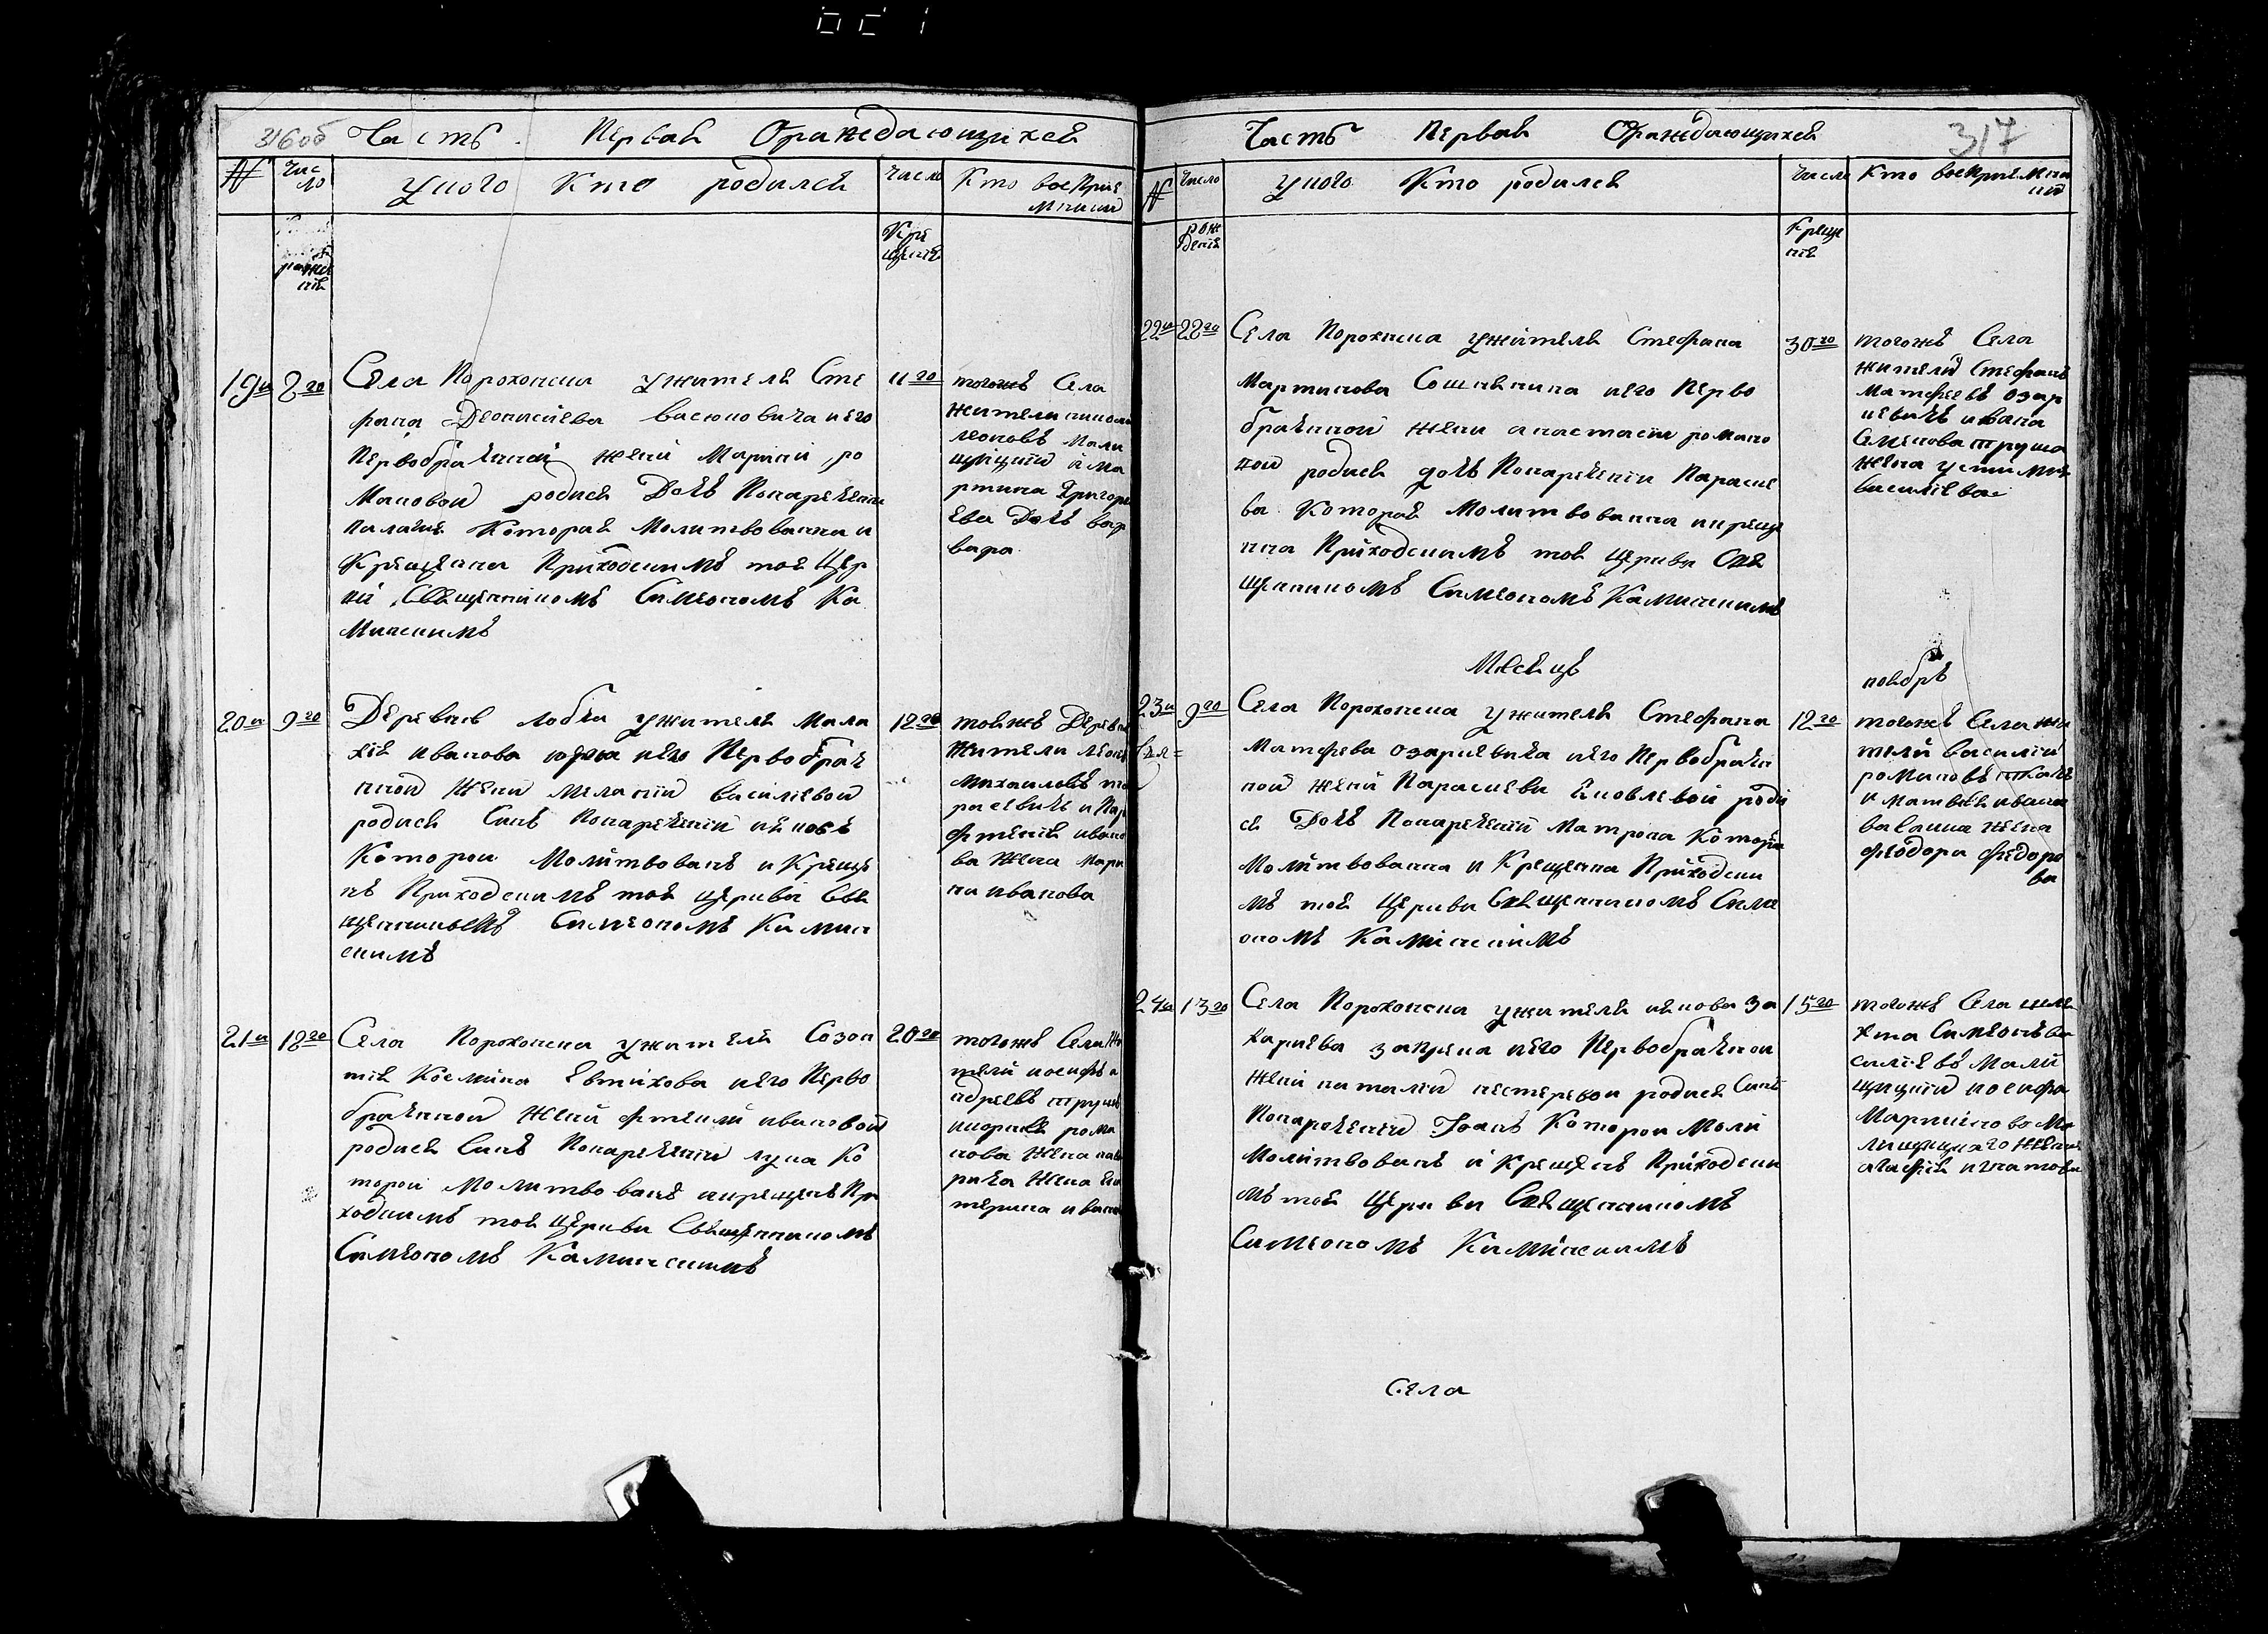 316об Часть Первая Ораждающихся
№ Чис
ло
У кого Кто родился
Число
Кто Восприе
мники
рожде
нія
Кре
щенія
19и 8го
Села Порохонска у жителя Сте
фана Деонисіева Васюновича и его
Первобрачной жени Марини Ро
мановой родися Дочь Понареченіи
Палагия Которая Молитвованна и
Крещенна Приходскимъ тоя Цер
кви Священикомъ Симеономъ Ка
минскимъ
11го
тогожъ Села
жители
леоновъ Мали
щицкий и Ма
ртина Григори
ева Дочь вар
вара
20и 9го
Деревнѣ Лобчи у жителя Мала
хія иванова и его Первобрач
нной Жени Меланіи Василіевой
родися Синъ Понареченіи иаковъ
Которои Молитвованъ и Креще
нъ Приходскимъ тоя церкви Свя
щенникомъ Симеономъ Камин
скимъ
12го
тояжъ Деревнѣ
Жители
михаиловъ та
расевичь и Пар
фенія ивано
ва Жена Мари
на иванова
21и 18го
Села Порохонска у жителя Созон
тія Космина Евтихова и его Перво
брачнной Жени Фтекли ивановой
родися Синъ Понареченіи лука Ко
торои Молитвованъ и крещенъ При
ходскимъ тоя Церкви Священникомъ
Симеономъ Каминскимъ
20го
тогожъ Села Жи
тели иосифъ а
ндреевъ труш
рома
нова Жена
Жена Ека
терина ивано
Часть Первая Ораждающихся 317
№
Число
У кого Кто родился
Число
Кто Восприемни
ки
рож
денія
Креще
нія
22и 22го
Села Порохонска у жителя Стефана
Мартинова Сошнина и его Перво
брачнной жени анастасіи романо
вой родися дочь Понареченіи Параске
ва Которая Молитвованна и креще
нна Приходскимъ тоя Церкви Свя
щенникомъ Симеономъ Каминскимъ
30го
тогожъ Села
жители Стефанъ
Матфеевъ Озар
чевичъ ивана
Семенова труша
жена
василіева
Месяцъ ноябрь
23и 9го
Села Порохонска у жителя Стефана
Матфева Озаричевича и его Первобрачн
ной жени Параскеви иаковлевой роди
ся Дочь Понареченіи Матрона Котора
Молитвованна и Крещенна Приходски
мъ тоя Церкви Священникомъ Симе
ономъ Каминскимъ
12го
тогожъ Села жи
тели Василій
романовъ ткачъ
и Матвея ивано
ва Жена
феодора федоро
ва
24и 13го
Села Порохонска у жителя иакова За
харіева и его Первобрачнои
жени наталіи нестеровои родися Синъ
Понареченіи Іоанъ Которои Моли
Молитвованъ и Крещенъ Приходски
мъ тоя Церкви Священникомъ
Симеономъ Каминскимъ
15го
тогожъ Села
Симеонъ Ва
силіевъ Мали
щицкий иосифа
Мартинова Ма
лищицкаго жена
агафія игнатова
Села